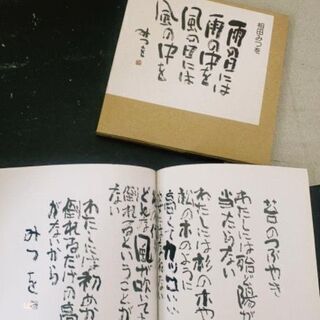 相田みつを
雨の日には
雨の中を
風の日には
風の中を
みつを
苔のつぶやき
わたしには殆ど陽が
当たらない
わたしには杉の木や
松の木のように
高くてカッコいい
どんな風が吹いても
倒れるということが
ない
わたしには初めから
倒れるだけの高
がないから
みつを